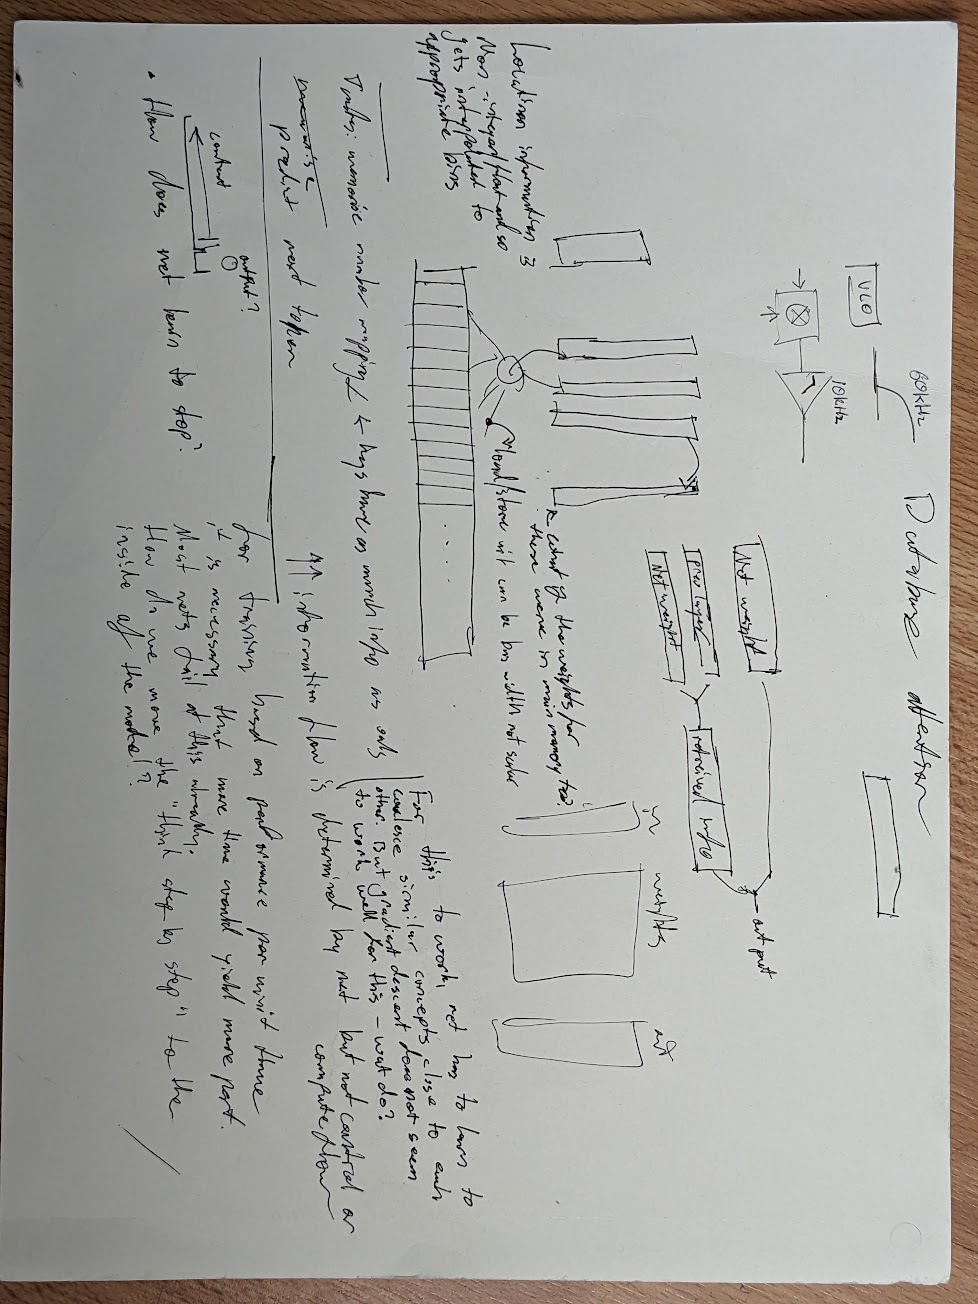 Database attention
60kHz
VCO
10kHz
Net weight
prev layer
Net weight
retrieved info
output
Location information is
Non-integer/float and so
gets interpolated to
appropriate bins
what if the weights for
these were in main memory too?
load/store unit can be bus width not scalar
in
weights
out
Tasks: memorise number mapping ← has have as much info as only
predict next token
For this to work, net has to learn to
coalesce similar concepts close to each
other. But gradient descent does not seem
to work well for this - wat do?
↑↑ information flow is determined by net but not control or
compute flow
context
output?
• How does net learn to stop?
for training based on performance per unit time
it is necessary that more time would yield more perf.
Most nets fail at this already.
How do we move the "think step by step" to the
inside of the model?